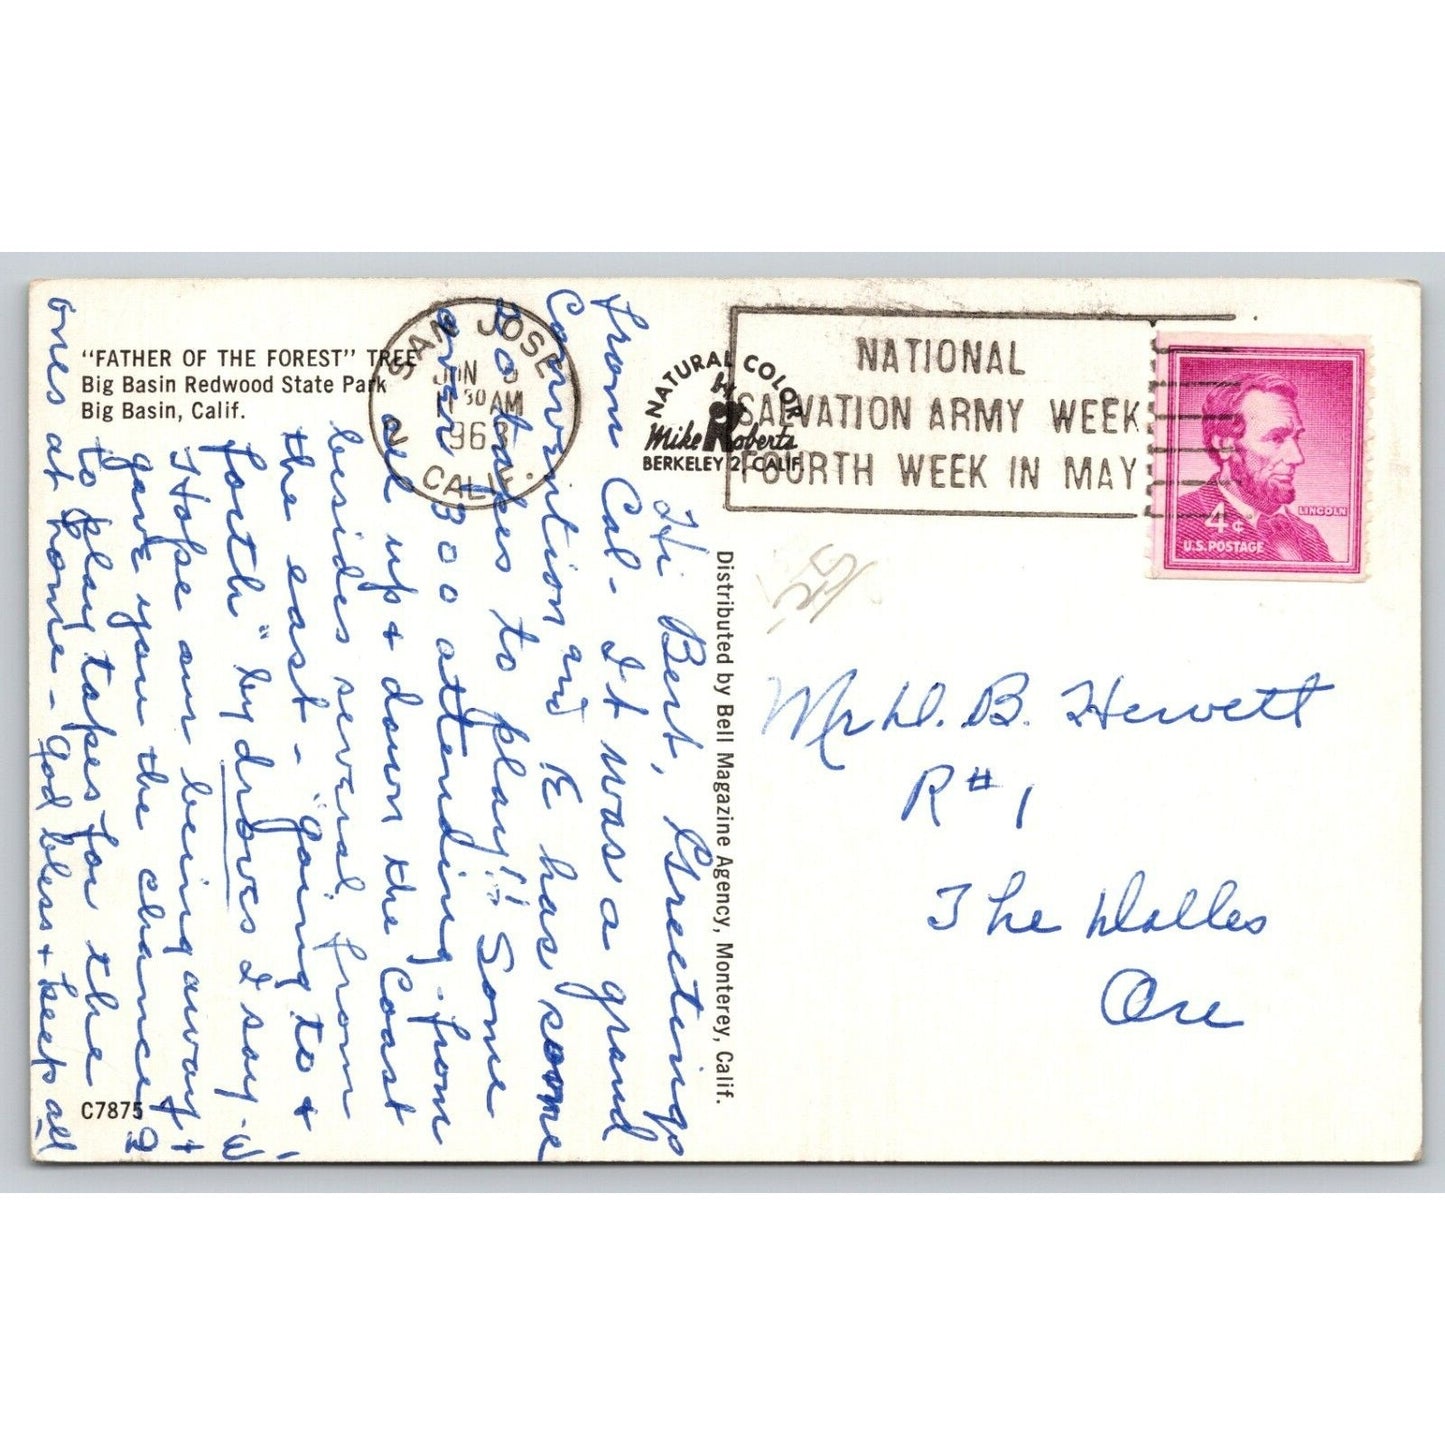 "FATHER OF THE FOREST" TREE
Big Basin Redwood State Park
Big Basin, Calif.
SAN JOSE
JUN
11 30 AM
196
CALIF.
2
NATURAL COLOR
by
Mike Roberts
BERKELEY 2, CALIF.
NATIONAL
SALVATION ARMY WEEK
FOURTH WEEK IN MAY
LINCOLN
4¢
U.S. POSTAGE
Hi Bert, Greetings
from Cal - It was a grand
Convention and R has some
tapes to play!! Some
over 1300 attending - from
all up + down the Coast
besides several from
the east - "going to +
forth" by droves I say.
Hope our being away
gave you the chance
to play tapes for the
ones at home - God bless + keep all
Distributed by Bell Magazine Agency, Monterey, Calif.
25
Mr W. B. Hewett
R #1
The Dalles
Ore
C7875